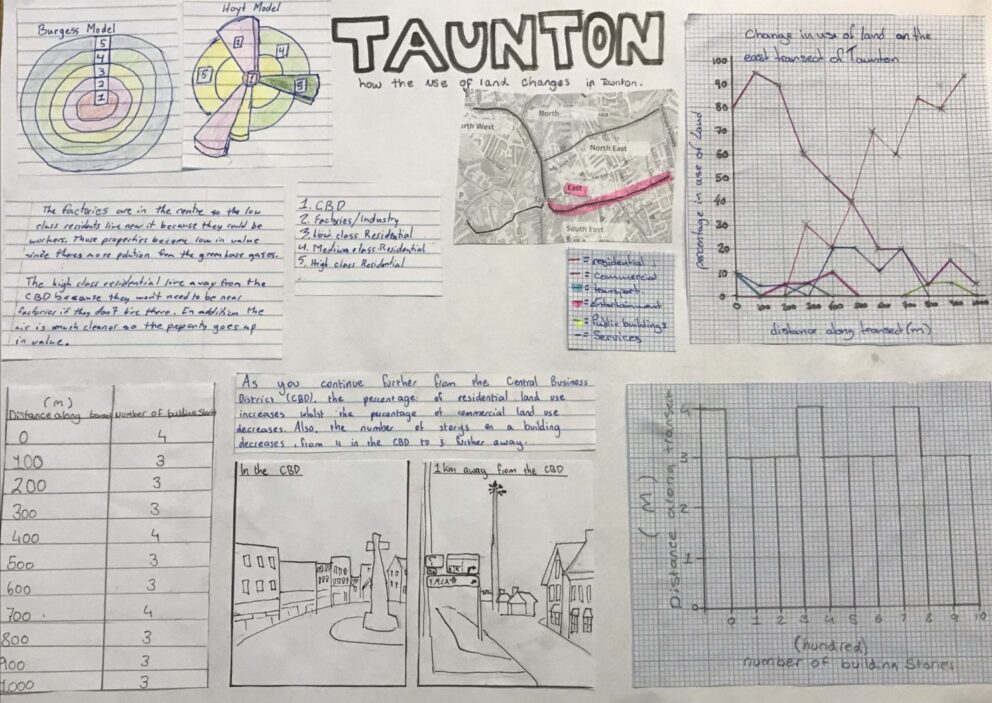 Burgess Model
5
4
3
2
1
Hoyt Model
2
4
5
1
3
3
TAUNTON
how the use of land changes in Taunton.
North
rth West
North East
East
South East
1. CBD
2. Factories/Industry
3. Low class Residential
4. Medium class Residential
5. High class Residential
= residential
= commercial
= transport.
= Entertainment
= Public buildings
= Services
Change in use of land on the
east transect of Taunton
parcentage in use of Land
100
90
80
70
60
50
40
30
20
10
0
0 100 200 300 400 500 600 700 800 900 1000
distance along transect (m)
The factories are in the centre so the low
class residents live near it because they could be
workers. Those properties become low in value
since theres more polution from the green house gases.
The high class residential live away from the
CBD because they won't need to be near
factories if they don't live there. In addition the
air is much cleanor so the peporty goes up
in value.
As you continue further from the Central Business
District (CBD), the percentage of residential land use
increases whilst the percentage of commercial land use
decreases. Also, the number of storys on a building
decreases, from 4 in the CBD to 3 further away.
(M)
Distance along Number of building
0 4
100 3
200 3
300 3
400 4
500 3
600 3
700 4
800 3
900 3
1000 3
In the CBD
1 km away from the CBD
Y.M.C.A
(M)
Distance along transect
4
3
2
1
0
0 1 2 3 4 5 6 7 8 9 10
(hundred)
number of building Stories